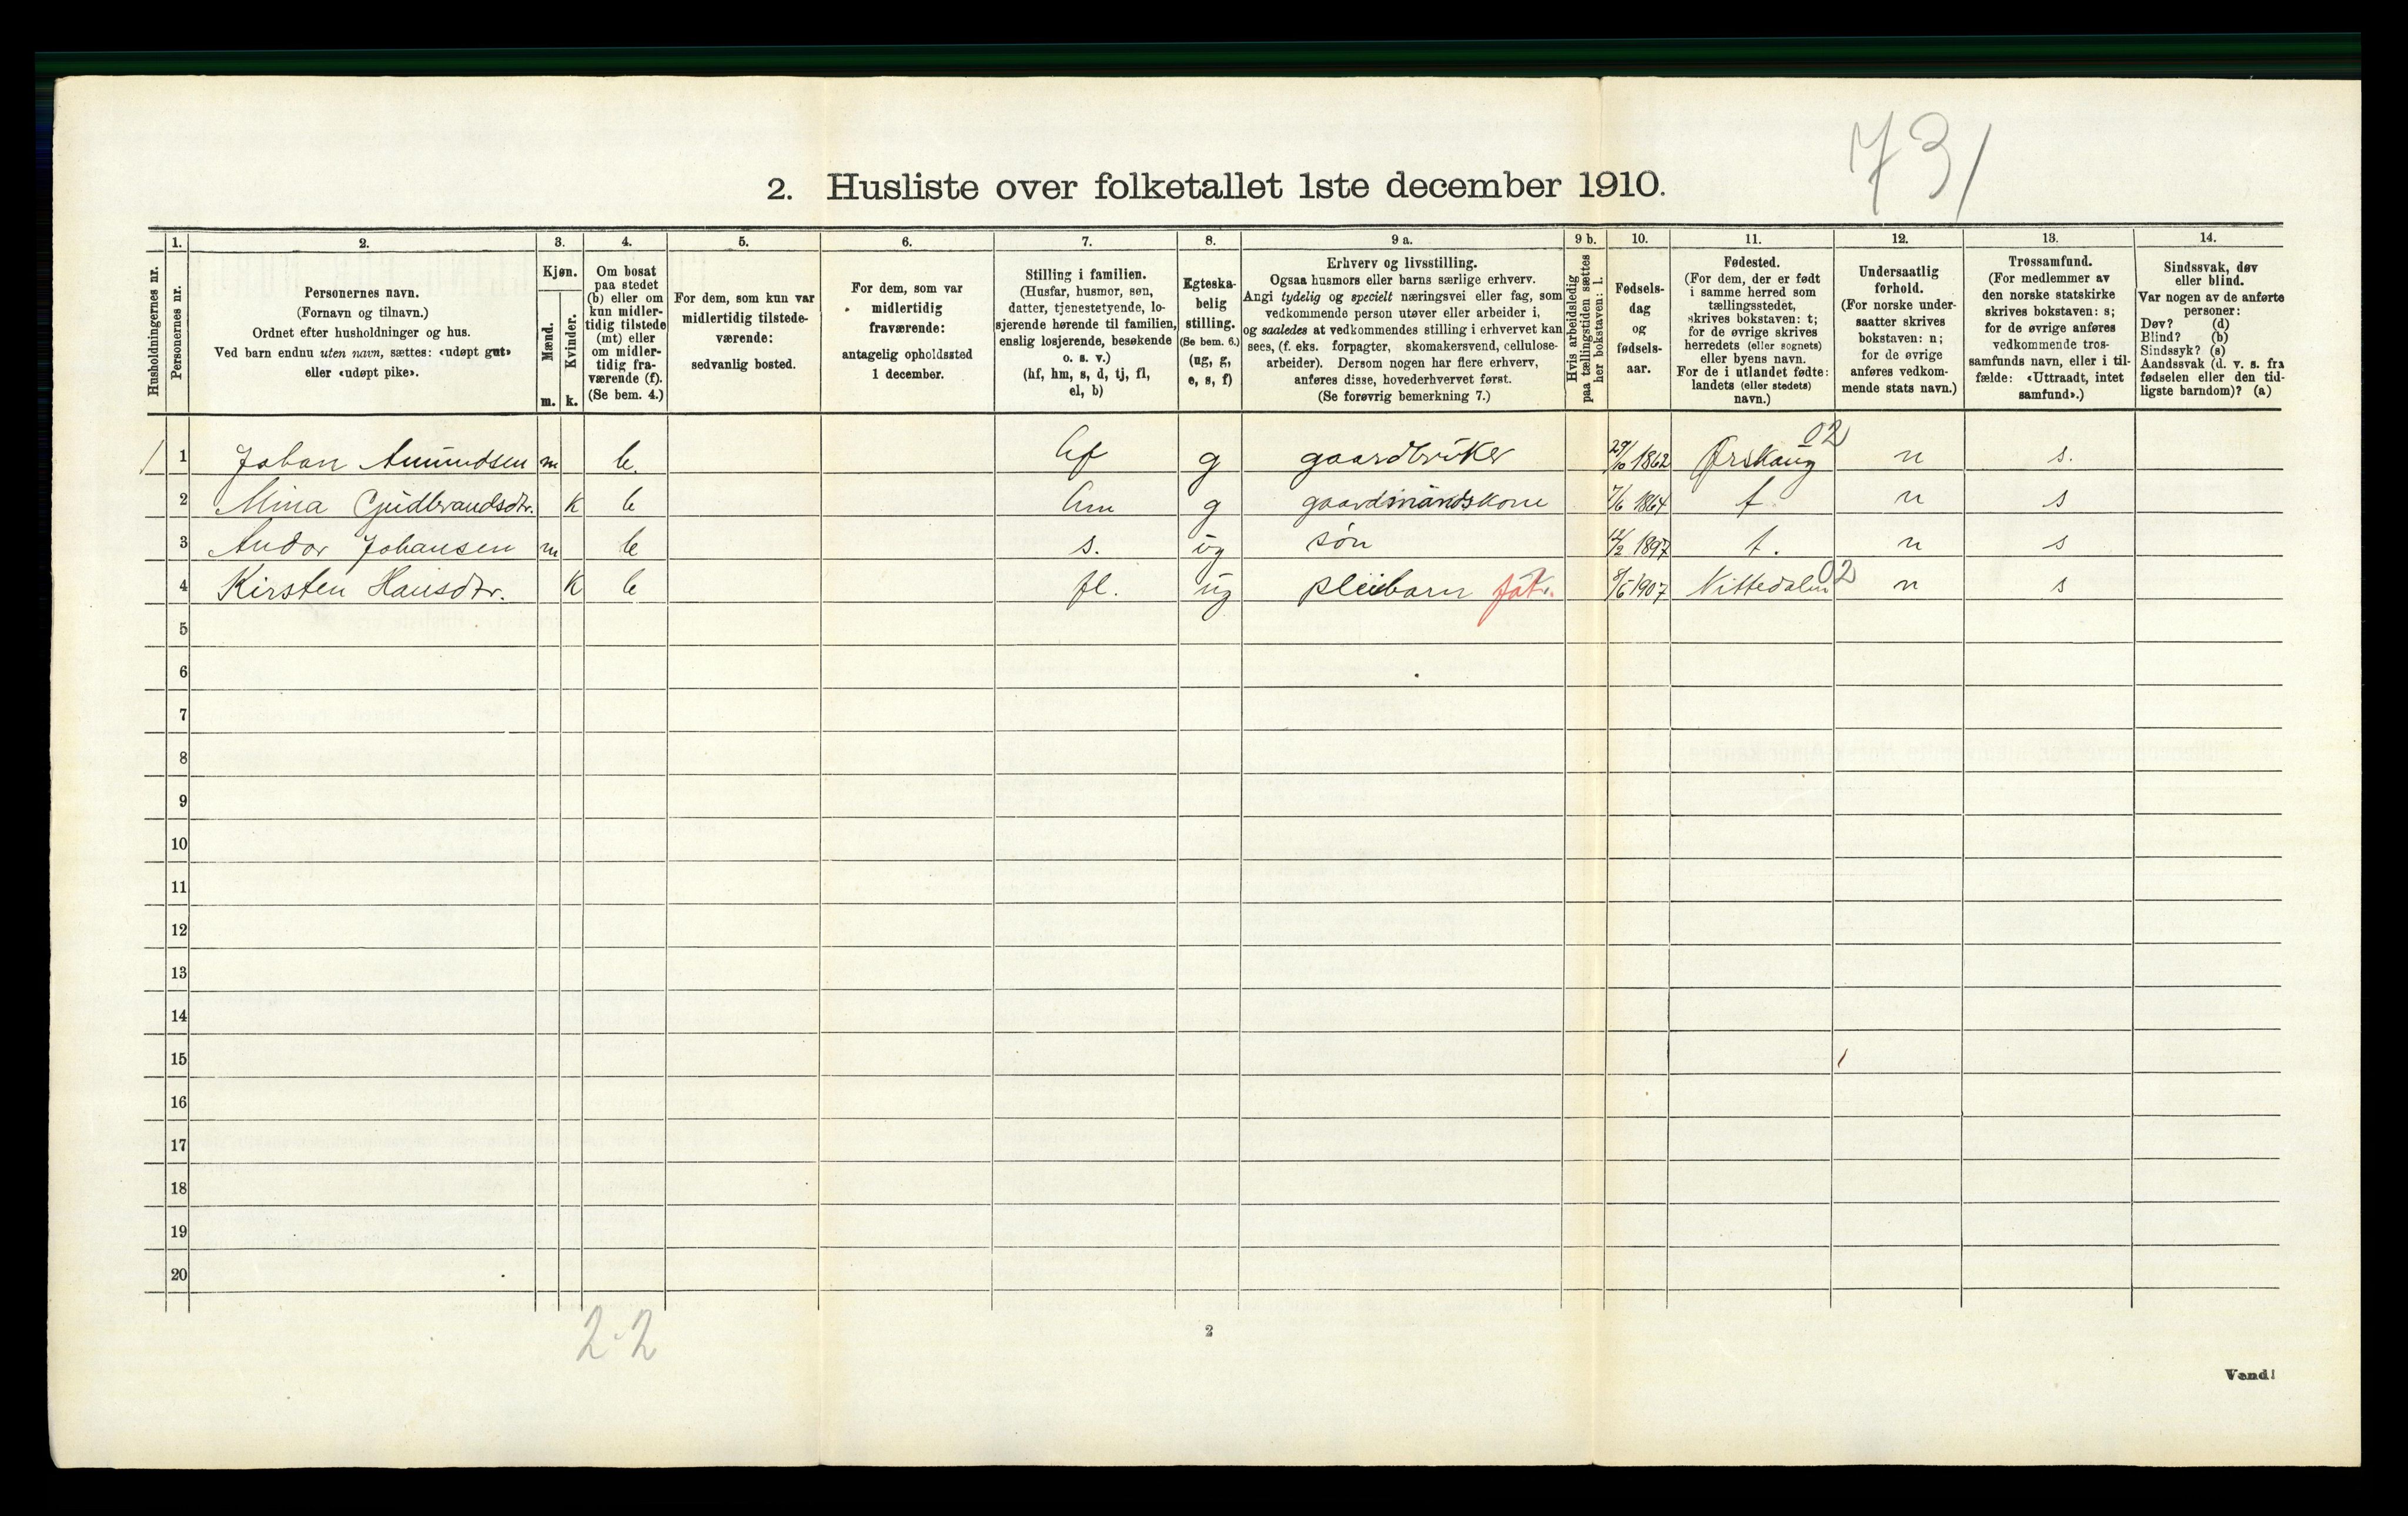 731
2. Husliste over folketallet 1ste december 1910.
Husholdningernes nr.
1.
Personernes nr.
2.
Personernes navn.
(Fornavn og tilnavn.)
Ordnet efter husholdninger og hus.
Ved barn endnu uten navn, sættes: «udøpt gut»
eller «udøpt pike».
3.
Kjøn.
Mænd.
Kvinder.
m. k.
4.
Om bosat
paa stedet
(b) eller om
kun midler-
tidig tilstede
(mt) eller
om midler-
tidig fra-
værende (f).
(Se bem. 4.)
5.
For dem, som kun var
midlertidig tilstede-
værende:
sedvanlig bosted.
6.
For dem, som var
midlertidig
fraværende:
antagelig opholdssted
1 december.
7.
Stilling i familien.
(Husfar, husmor, søn,
datter, tjenestetyende, lo-
sjerende hørende til familien,
enslig losjerende, besøkende
o. s. v.)
(hf, hm, s, d, tj, fl,
el, b)
8.
Egteska-
belig
stilling.
(Se bem. 6.)
(ug, g,
e, s, f)
9 a.
Erhverv og livsstilling.
Ogsaa husmors eller barns særlige erhverv.
Angi tydelig og specielt næringsvei eller fag, som
vedkommende person utøver eller arbeider i,
og saaledes at vedkommendes stilling i erhvervet kan
sees, (f. eks. forpagter, skomakersvend, cellulose-
arbeider). Dersom nogen har flere erhverv,
anføres disse, hovederhvervet først.
(Se forøvrig bemerkning 7.)
9 b.
Hvis arbeidsledig
paa tællingstiden sættes
her bokstaven: l.
10.
Fødsels-
dag
og
fødsels-
aar.
11.
Fødested.
(For dem, der er født
i samme herred som
tællingsstedet,
skrives bokstaven: t;
for de øvrige skrives
herredets (eller sognets)
eller byens navn.
For de i utlandet fødte:
landets (eller stedets)
navn.)
12.
Undersaatlig
forhold.
(For norske under-
saatter skrives
bokstaven: n;
for de øvrige
anføres vedkom-
mende stats navn.)
13.
Trossamfund.
(For medlemmer av
den norske statskirke
skrives bokstaven: s;
for de øvrige anføres
vedkommende tros-
samfunds navn, eller i til-
fælde: «Uttraadt, intet
samfund».)
14.
Sindssvak, døv
eller blind.
Var nogen av de anførte
personer:
Døv? (d)
Blind? (b)
Sindssyk? (s)
Aandssvak (d. v. s. fra
fødselen eller den tid-
ligste barndom)? (a)
1 1 Johan Amundsen m b. hf g gaardbruker 29/10 1862 Ørskaug 02 n s.
2 Mina Gudbrandsdtr. k b hm g gaardmandskone 7/6 1864 t n s
3 Andor Johansen m b s. ug søn 12/2 1897 t. n s
4 Kirsten Hansdtr. k b fl. ug pleiebarn 8/5 1907 Nittedalen 02 n s
5
6
7
8
9
10
11
12
13
14
15
16
17
18
19
20
2-2
2
Vend!